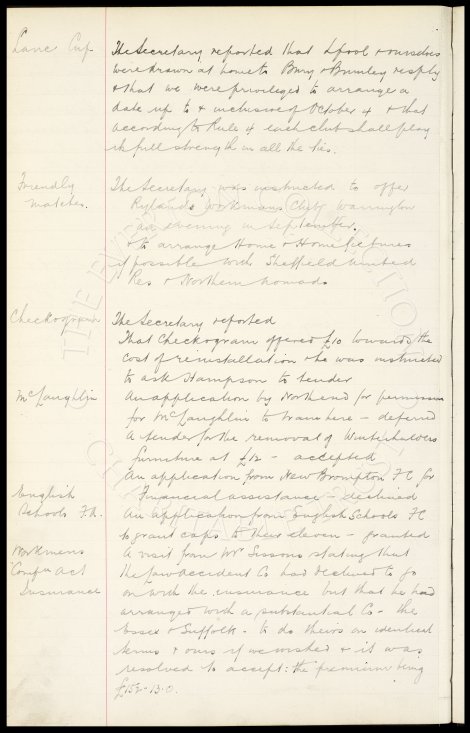 Lanc Cup
The Secretary reported that L'pool & ourselves
were drawn at home to Bury & Burnley resply
& that we were privileged to arrange a
date up to & inclusive of October 4 & that
according to Rule 4 each club shall play
its full strength in all the ties.
Friendly
matches.
The Secretary was instructed to offer
Rylands Workmans Warrington
an evening in September.
& to arrange Home & Home fixtures
if possible with Sheffield United
Res & Northern Nomads
Checkogram
The Secretary reported
That Checkogram offered £10 towards the
cost of reinstallation & he was instructed
to ask Hampson to tender
McLaughlin
An application by Northend for permission
for McLaughlin to train here - deferred
A tender for the removal of Winterhalders
furniture at £12 - accepted
An application from New Brompton FC for
Financial assistance - declined
English
Schools F.A.
An application from English Schools FC
to grant caps to their eleven - granted
Workmens
Compn Act
Insurance
A visit from Mr Sissons stating that
the Law Accident Co had declined to go
on with the insurance but that he had
arranged with a substantial Co - the
Essex & Suffolk - to do theirs on identical
terms & ours if we wished & it was
resolved to accept: the premium being
£152-13-0.